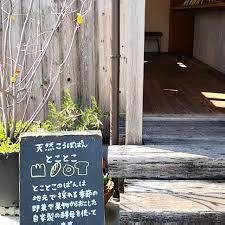 天然こうぼぱん
とことこ
とことこのぱんは
地元で採れる季節の
野草や果物からおこした
自家製の酵母を使って